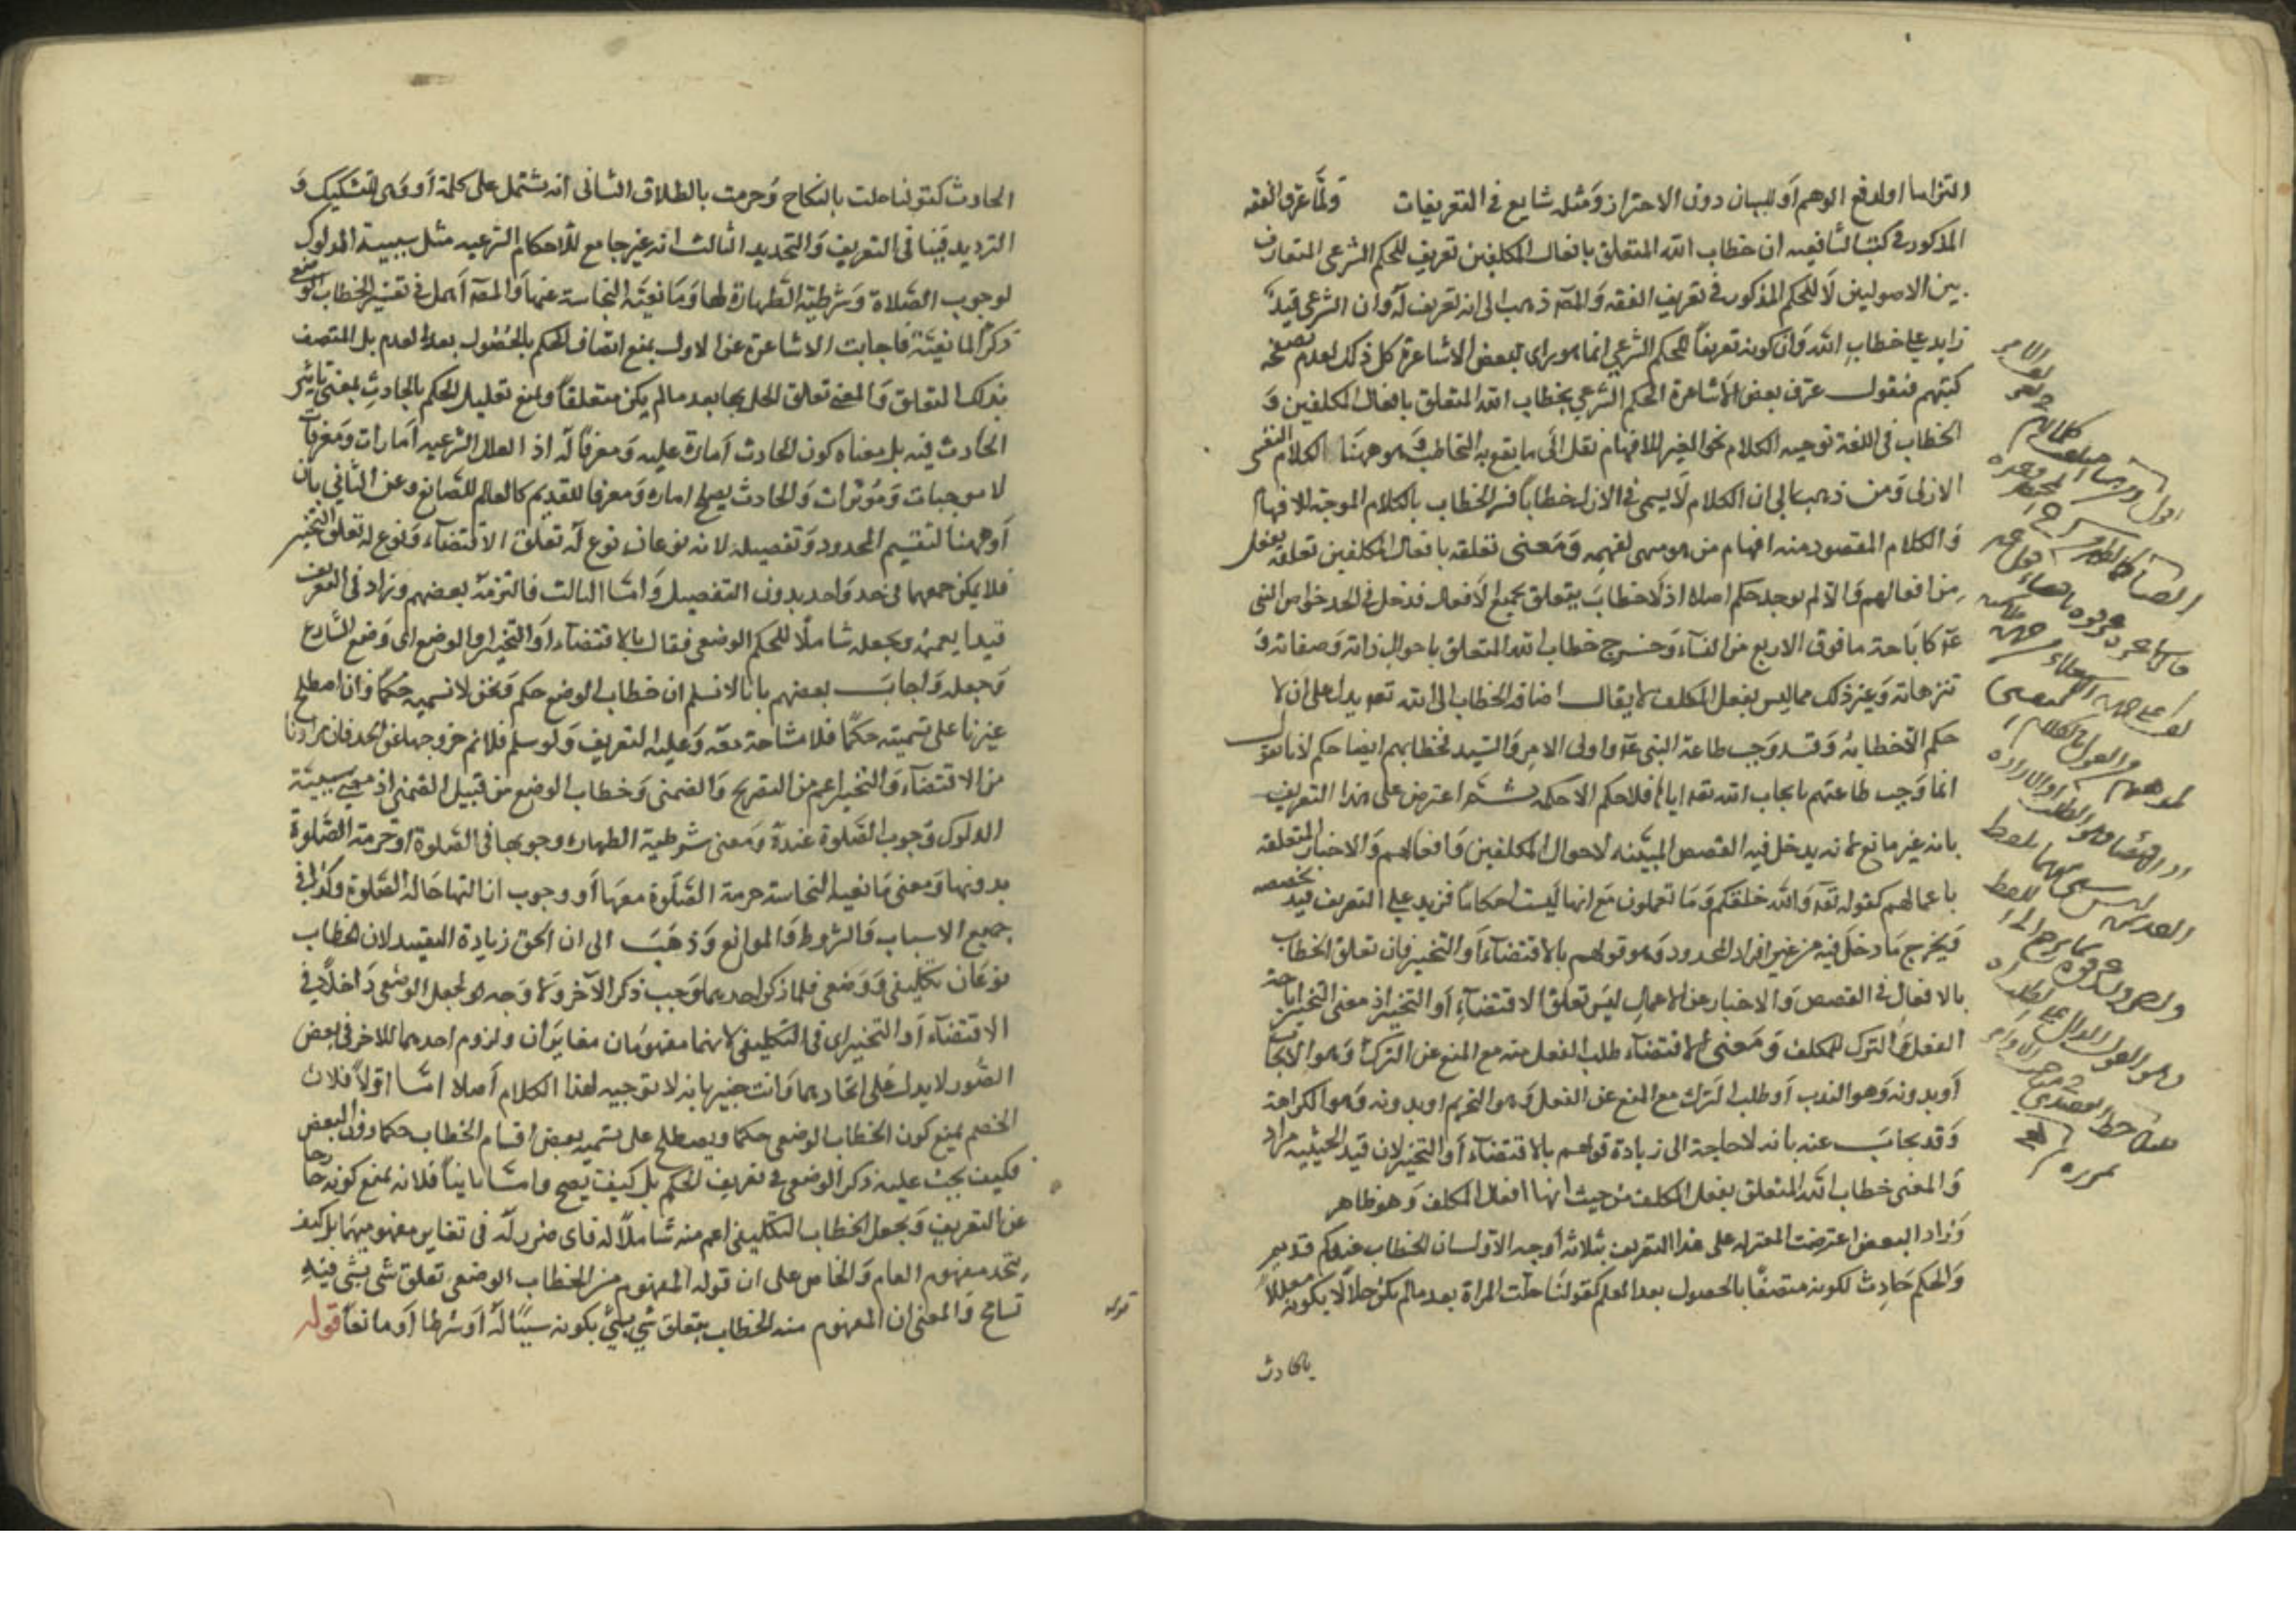 التزاما او لدفع الوهم او للبيان دون الاحتراز ومثله شايع في التعريفات ولما عرف الفقه
المذكور في كتب الشافعيه ان خطاب الله المتعلق بافعال المكلفين تعريف للحكم الشرعي المتعارف
بين الاصوليين لا للحكم المذكور في تعريف الفقه والمص ذهب الى انه تعريف له وان الشرعي قيد
زايد على خطاب الله وان كونه تعريفا للحكم الشرعي انما هو راى لبعض الاشاعرة كل ذلك لعدم تصفحه
كتبهم فنقول عرف بعض الاشاعرة الحكم الشرعي بخطاب الله المتعلق بافعال المكلفين و
الخطاب في اللغة توجيه الكلام نحو الغير للافهام نقل الى ما يقع به التخاطب وهو ههنا الكلام النفسى
الازلى ومن ذهب الى ان الكلام لا يسمى في الازل خطابا فسر الخطاب بالكلام الموجه للافهام
والكلام المقصود منه افهام من هو متهى لفهمه ومعنى تعلقه بافعال المكلفين تعلقه بفعل
من افعالهم والا لم يوجد حكم اصلا اذ لا خطاب يتعلق بجميع الافعال فدخل في الحد خواص النبى
عم كاباحة ما فوق الاربع من النساء وخرج خطاب الله المتعلق باحوال ذاته وصفاته و
تنزهاته وغير ذلك مما ليس بفعل المكلف لا يقال اضافة الخطاب الى الله تعم يدل على ان لا
حكم الا خطابه وقد وجب طاعة النبى عم واولى الامر والسيد فخطابهم ايضا حكم لانا نقول
انما وجب طاعتهم بايجاب الله تعم اياها فلا حكم الا حكمه ثم اعترض على هذا التعريف
بانه غير مانع لانه يدخل فيه القصص المبينه لاحوال المكلفين وافعالهم والاخبار المتعلقه
باعمالهم كقوله تعم والله خلقكم وما تعملون مع انها ليست احكاما فزيد على التعريف قيد يخصصه
ويخرج ما دخل فيه من غير افراد المحدود وهو قولهم بالاقتضاء او التخيير فان تعلق الخطاب
بالافعال في القصص والاخبار عن الاعمال ليس تعلق الاقتضاء او التخيير اذ معنى التخيير اباحة
الفعل والترك للمكلف ومعنى الاقتضاء طلب الفعل منه مع المنع عن الترك وهو الايجاب
او بدونه وهو الندب او طلب الترك مع المنع عن الفعل وهو التحريم او بدونه وهو الكراهة
وقد يجاب عنه بانه لا حاجة الى زيادة قولهم بالاقتضاء او التخيير لان قيد الحيثيه مراد
والمعنى خطاب الله المتعلق بفعل المكلف من حيث انها افعال المكلف وهو ظاهر
وزاد البعض اعترضت المعتزله على هذا التعريف بثلاثة اوجه الاول ان الخطاب عندكم قديم
والحكم حادث لكونه متصفا بالحصول بعد العدم كقولنا حلت المراة بعد مالم يكن حلالا بكونه معللا
بالحادث
الحادث كقولنا حلت بالنكاح وحرمت بالطلاق الثانى انه يشتمل على كلمة او وهى للتشكيك و
الترديد فينافى التعريف والتحديد الثالث انه غير جامع للاحكام الشرعيه مثل سببية الدلوك
لوجوب الصلاة وشرطية الطهارة لها ومانعية النجاسة عنها والمص اهمل في تفسير الخطاب الوضعى
ذكر المانعية فاجابت الاشاعرة عن الاول بمنع اتصاف الحكم بالحصول بعد العدم بل المتصف
بذلك التعلق والمعنى تعلق الحل بها بعد مالم يكن متعلقا وبمنع تعليل الحكم بالحادث بمعنى تاثير
الحادث فيه بل معناه كون الحادث امارة عليه ومعرفا له اذ العلل الشرعيه امارات ومعرفات
لا موجبات ومؤثرات والحادث يصلح امارة ومعرفا للقديم كالعالم للصانع وعن الثاني بان
او ههنا لتقسيم المحدود وتفصيله لانه نوعان نوع له تعلق الاقتضاء ونوع له تعلق التخيير
فلا يمكن جمعهما في حد واحد بدون التفصيل واما الثالث فالتزمه بعضهم وزاد في التعريف
قيدا يعمه ويجعله شاملا للحكم الوضعى فقال بالاقتضاء او التخيير او الوضع اى وضع الشارع
وجعله واجاب بعضهم بانا لا نسلم ان خطاب الوضع حكم ونحن لا نسميه حكما وان اصطلح
غيرنا على تسميته حكما فلا مشاحة معه وعليه التعريف ولو سلم فلا نم خروجها عن الحد فان مرادنا
من الاقتضاء والتخيير اعم من التصريح والضمنى وخطاب الوضع من قبيل الضمنى اذ معنى سببية
الدلوك وجوب الصلوة عنده ومعنى شرطية الطهارة وجوبها في الصلوة او حرمة الصلوة
بدونها ومعنى مانعية النجاسة حرمة الصلوة معها او وجوب ازالتها حالة الصلوة وكذا في
جميع الاسباب والشروط والموانع وذهب الى ان الحق زيادة التقييد لان الخطاب
نوعان تكليفى ووضعى فلما ذكر احدهما وجب ذكر الآخر ولا وجه لجعل الوضعى داخلا في
الاقتضاء او التخيير اى في التكليفى لانهما مفهومان متغايران ولزوم احدهما للاخر في بعض
الصور لا يدل على اتحادهما وانت خبير بانه لا توجيه لهذا الكلام اصلا اما اولا فلان
الخصم يمنع كون الخطاب الوضعى حكما ويصطلح على تسميه بعض اقسام الخطاب حكما دون البعض
فكيف يجب عليه ذكر الوضعى في تعريف الحكم بل كيف يصح واما ثانيا فلانه يمنع كونه خارجا
عن التعريف ويجعل الخطاب التكليفى اعم منه شاملا له فاى ضرر له في تغاير مفهوميهما بل كيف
يتحد مفهوم العام والخاص على ان قوله المفهوم من الخطاب الوضعى تعلق شى بشى فيه
تسامح والمعنى ان المفهوم منه الخطاب بتعلق شى بشى بكونه سببا له او شرطا او مانعا قوله
قوله